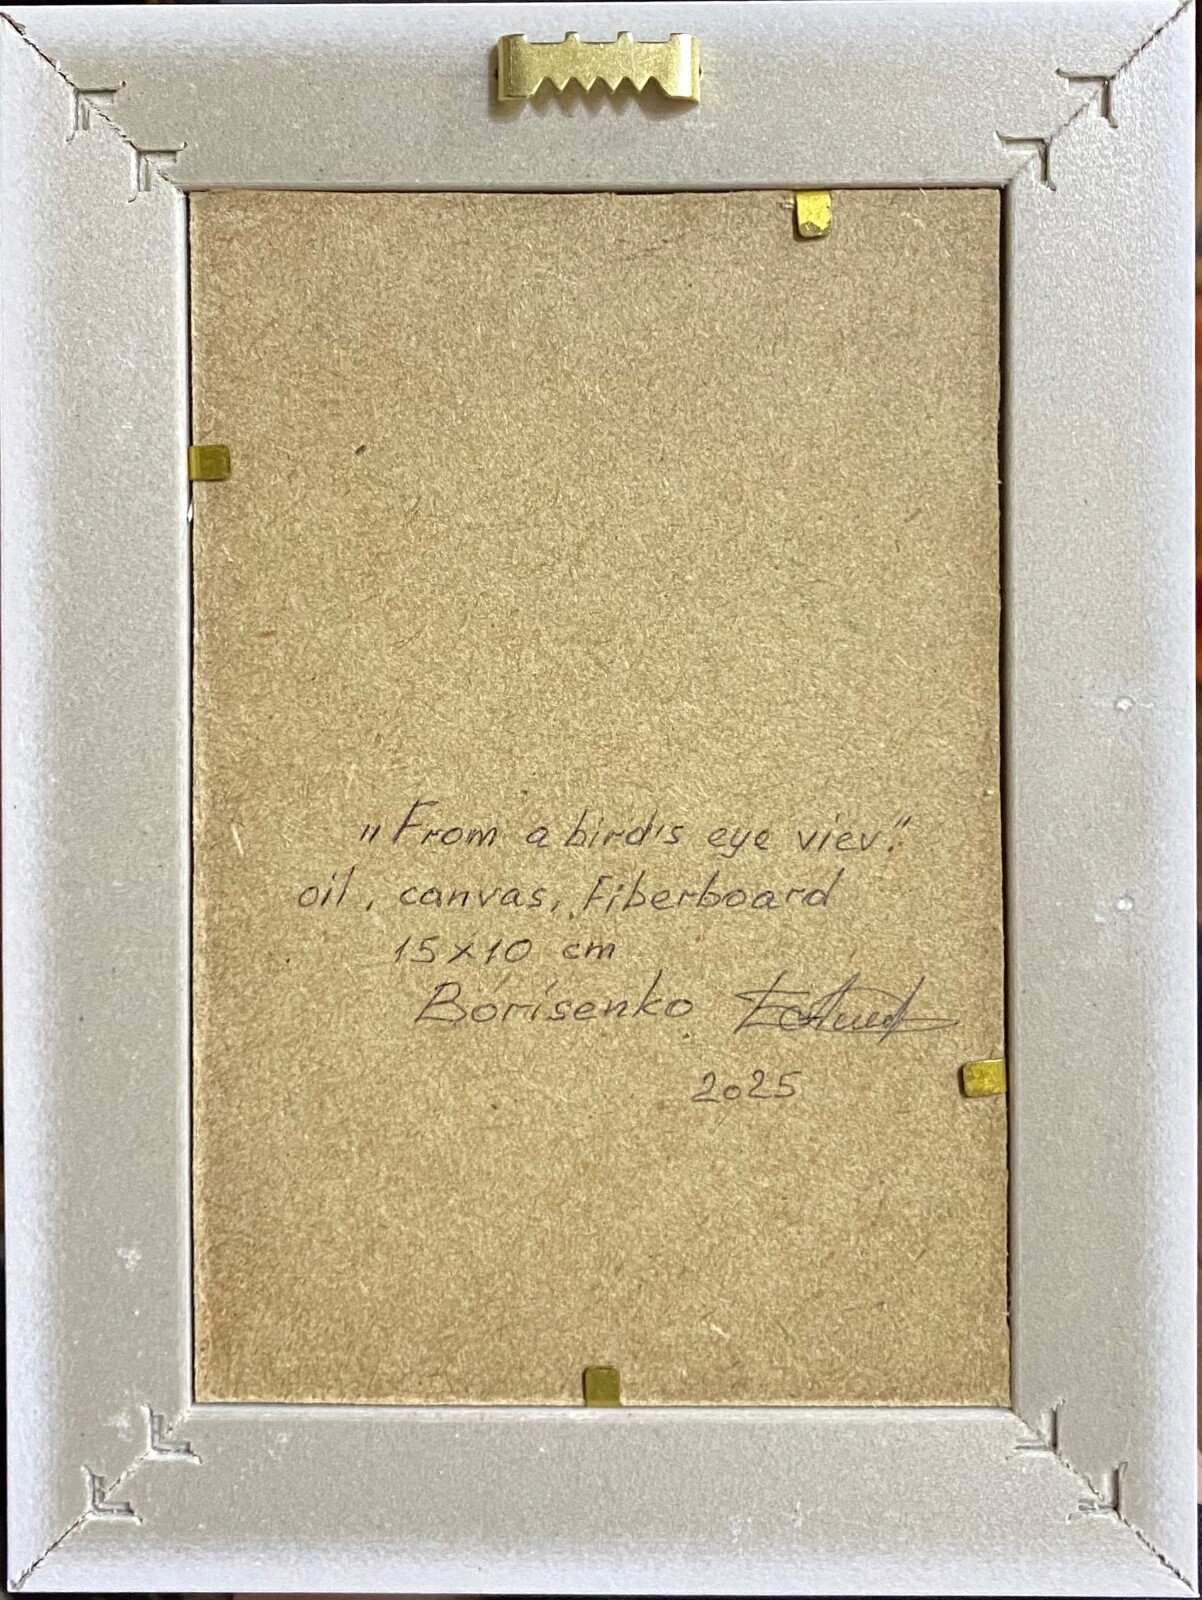 „From a bird's eye viev."
oil, canvas, Fiberboard
15x10 cm
Borisenko
2025